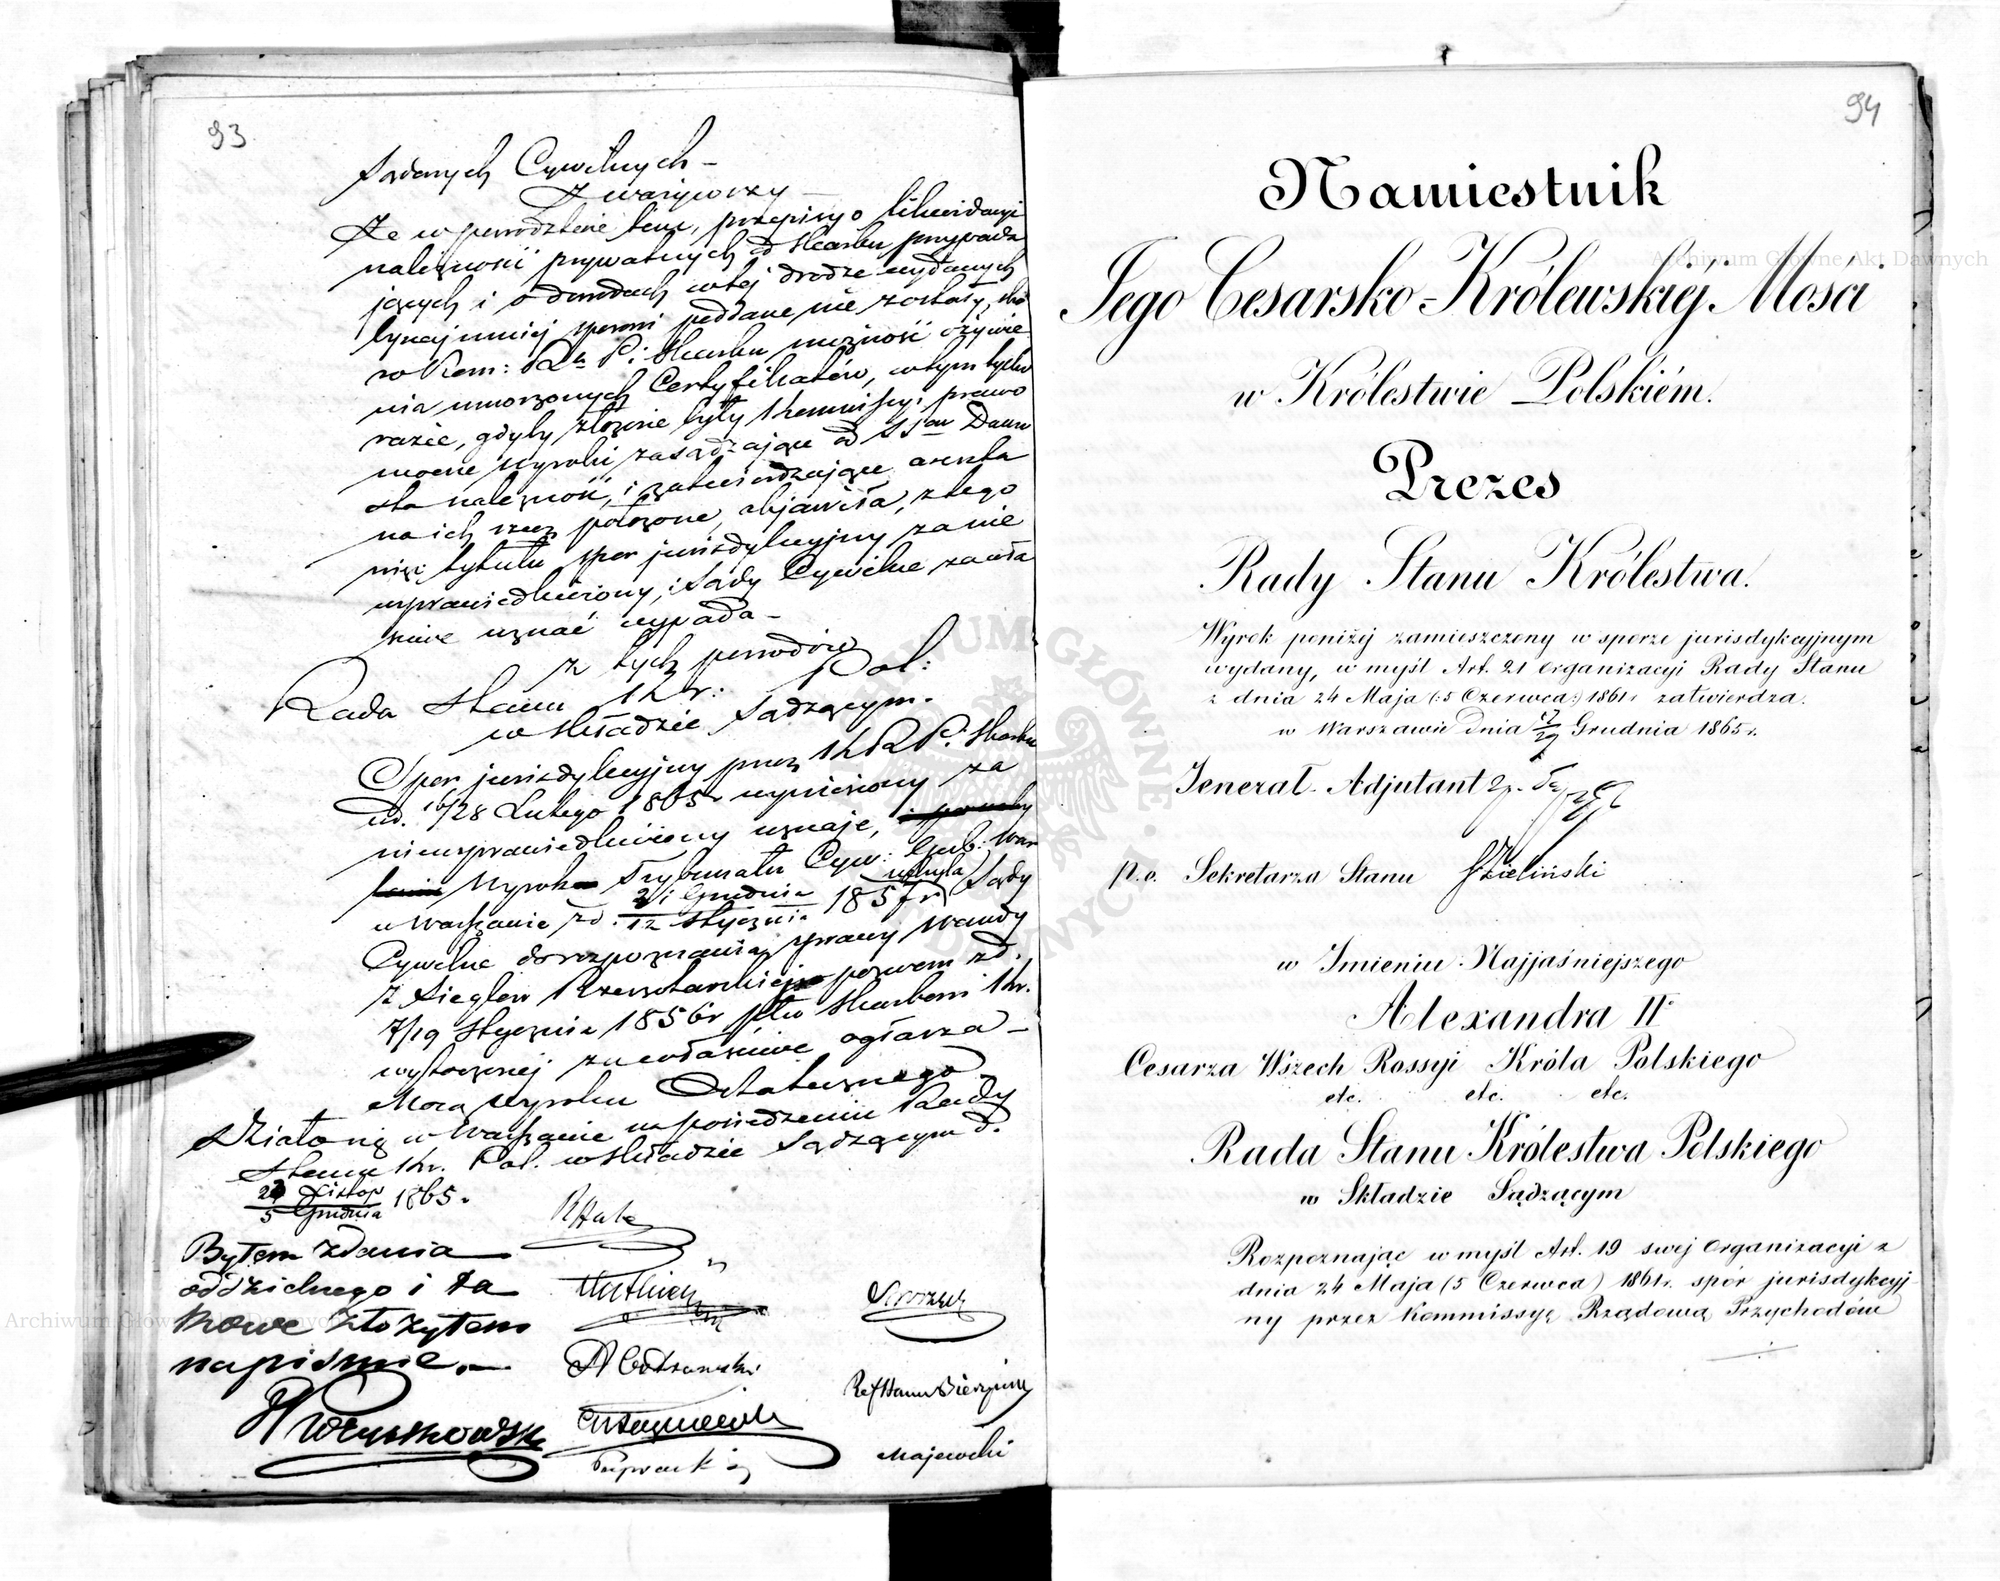 93
Sądowych Cywilnych –
Zważywszy –
Że w porządzie tem, przepisy o likwidacyi
należności prywatnych od Skarbu przypada
jących i o dowodach w tej drodze wydanych
bynajmniej sporem poddane nie zostały,
Kom: Rz. P. i Skarbu możność ożywie
nia umorzonych Certyfikatów, w tym tylko
razie, gdyby złożone były Kommissyi prawo
mocne wyroki zasądzające od
należność, i zatwierdzające areszta
na ich rzecz położone, objawiła, z tego
więc tytułu spór jurisdykcyjny za nie
usprawiedliwiony, i Sądy Cywilne za wła
ściwe uznać wypada –
z tych powodów
Rada Stanu Kr: Pol:
w Składzie Sądzącym.
Spór jurisdykcyjny przez K R P. i Skarbu
ud. 16/28 Lutego 1865 r wyniesiony za
nieusprawiedliwiony uznaje,
Wyrok Trybunału Cyw: Gub: War
w Warszawie z d. 21 Grudnia / 12 Stycznia 1857 r uchyla Sądy
Cywilne do rozpoznania sprawy Wandy
z Sieglów pozwem z d.
7/19 Stycznia 1856 r pko Skarbowi Kr.
wytoczonej za właściwe ogłasza –
Mocą wyroku Ostatecznego.
Działo się w Warszawie na posiedzeniu Rady
Stanu Kr. Pol. w Składzie Sądzącym d.
23 Listop / 5 Grudnia 1865.
Byłem zdania
oddzielnego i ta
kowe złożyłem
na piśmie. –
Majewski
94
Namiestnik
Jego Cesarsko-Królewskiéj Mości
w Królestwie Polskiém.
Prezes
Rady Stanu Królestwa.
Wyrok poniżéj zamieszczony w sporze jurisdykcyjnym
wydany, w myśl Art. 21 Organizacyi Rady Stanu
z dnia 24 Maja (:5 Czerwca:) 1861 r zatwierdza.
w Warszawie dnia 17/29 Grudnia 1865 r.
Jenerał-Adjutant
p.o. Sekretarza Stanu Zieliński
w Imieniu Najjaśniejszego
Alexandra IIgo
Cesarza Wszech Rossyi Króla Polskiego
etc. etc. etc.
Rada Stanu Królestwa Polskiego
w Składzie Sądzącym
Rozpoznając w myśl Art. 19 swej Organizacyi z
dnia 24 Maja (5 Czerwca) 1861 r. spór jurisdykcyj
ny przez Kommissyę Rządową Przychodów
Archiwum Główne Akt Dawnych